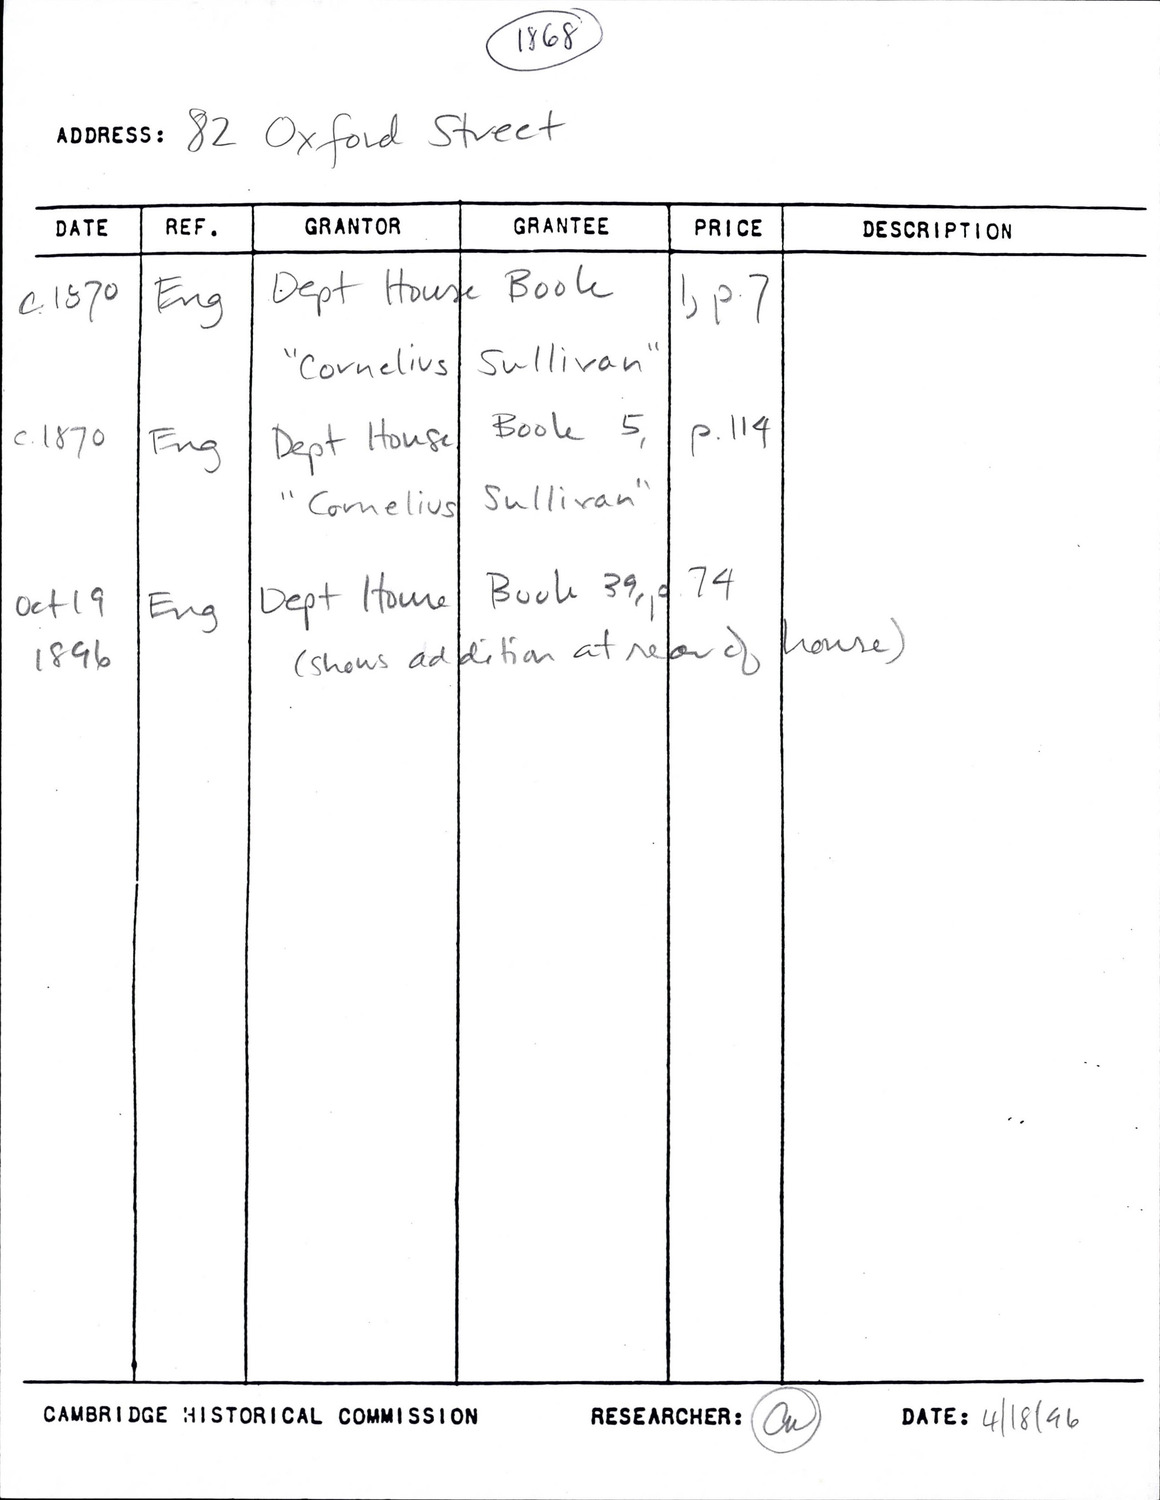 1868
ADDRESS: 82 Oxford Street
DATE REF. GRANTOR GRANTEE PRICE DESCRIPTION
c.1870 Eng Dept House Book 1, p.7
"Cornelius Sullivan"
c.1870 Eng Dept House Book 5, p.114
"Cornelius Sullivan"
Oct 19 Eng Dept House Book 39, p 74
1896 (shows addition at rear of house)
CAMBRIDGE HISTORICAL COMMISSION RESEARCHER: DATE: 4/18/96